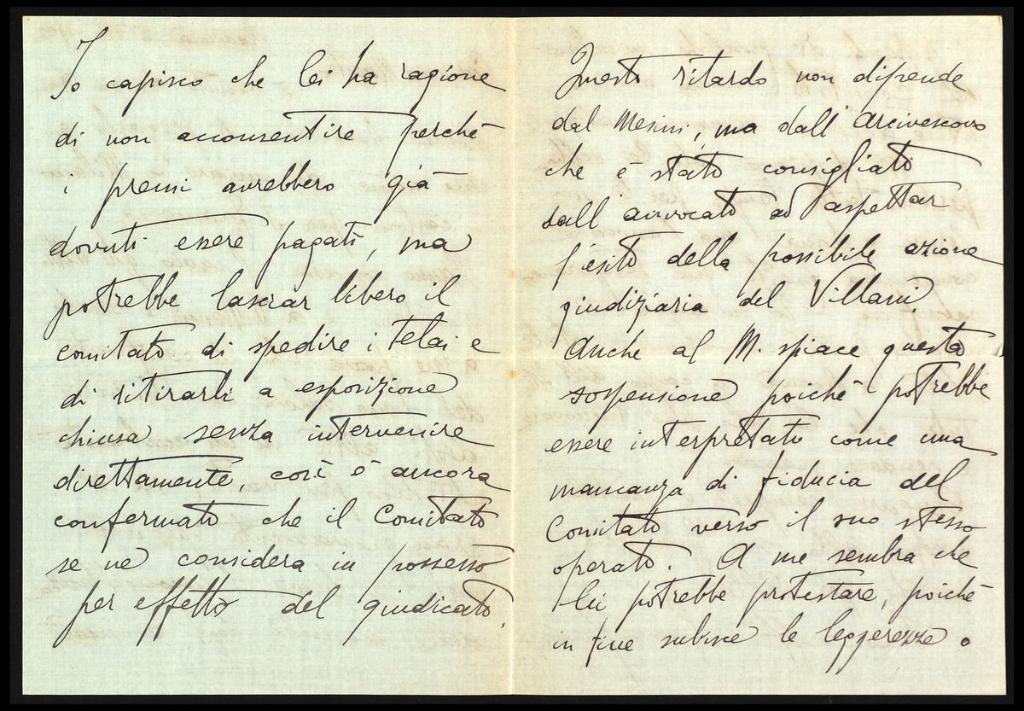 Io capisco che lei ha ragione
di non acconsentire perchè
i premi avrebbero già
dovuti essere pagati, ma
potrebbe lasciar libero il
comitato di spedire i telai e
di ritirarli a esposizione
chiusa senza intervenire
direttamente, così è ancora
confermato che il Comitato
se ne considera in possesso
per effetto del giudicato.
Questo ritardo non dipende
dal Mesini, ma dall'Arcivescovo
che è stato consigliato
dall'avvocato ad aspettar
l'esito della possibile azione
giudiziaria del Villani
Anche al M. spiace questa
sospensione poichè potrebbe
essere interpretato come una
mancanza di fiducia del
Comitato verso il suo stesso
operato. A me sembra che
lei potrebbe protestare, poichè
in fine subisce le leggerezze.